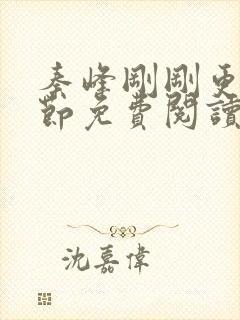 秦峰剛剛更
節免費閱讀
沈嘉偉